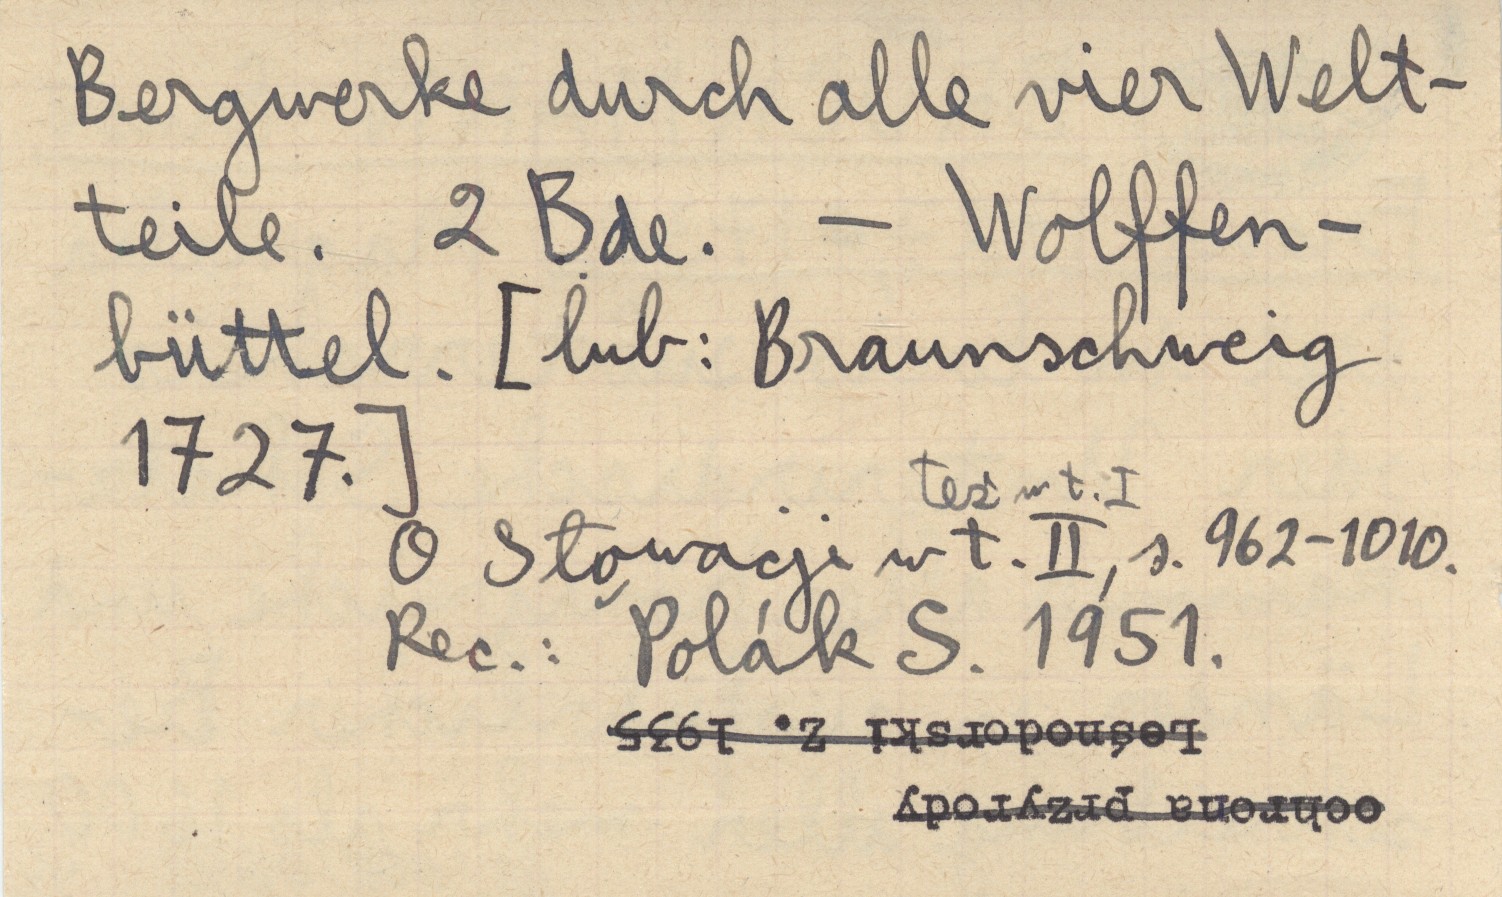 Bergwerke durch alle vier Welt-
teile. 2 Bde. — Wolffen-
büttel. [lub: Braunschweig
1727.]
też w t. I
O Słowacji w t. II, s. 962-1010.
Rec.: Polák S. 1951.
Leśnodorski Z. 1935
ochrona przyrody